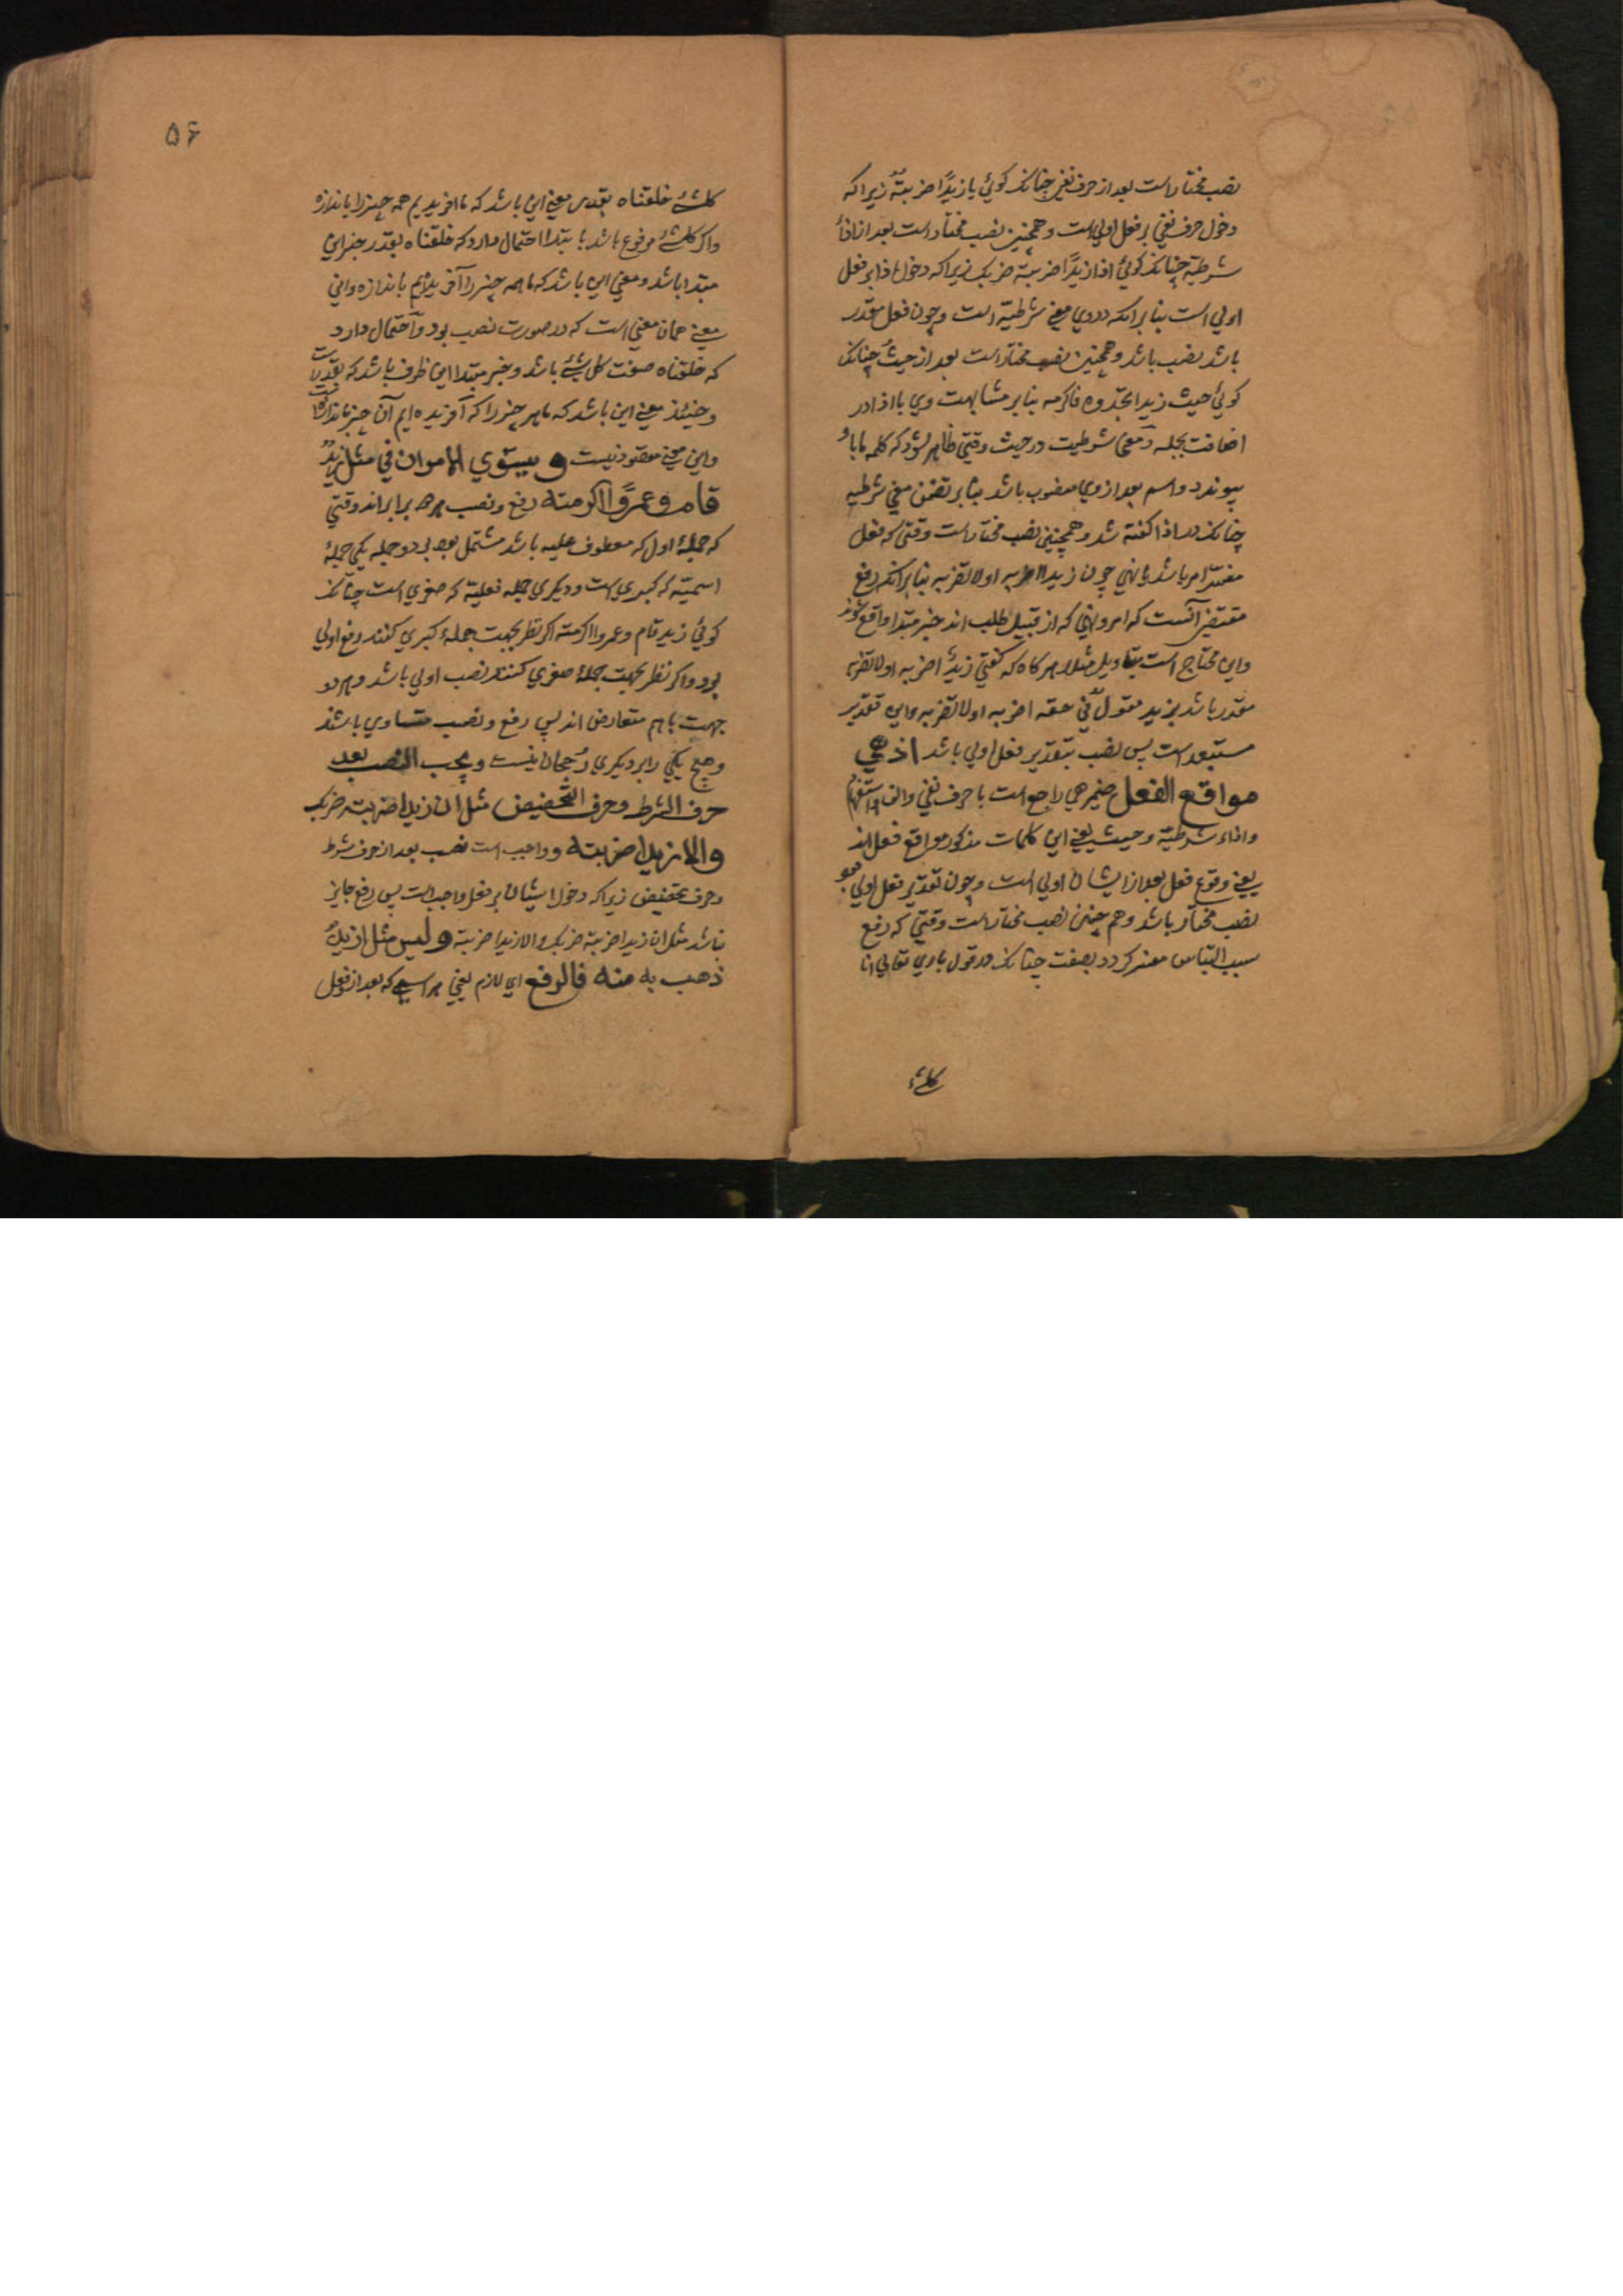 نصب مختارست بعد از حرف نفی چنانک کوئی ما زیدًا ضربتهُ زیرا که
دخول حرف نفی بر فعل اولی است و همچنین نصب مختار است بعد از اذاء
شرطیة چنانک کوئی اذا زیدًا ضربته ضربک زیرا که دخول اذا بر فعل
اولی است بنا بر انکه در وی معنی شرطیة است و چون فعل مقدر
باشد نصب باشد و همچنین نصب مختار است بعد از حیثُ چنانک
کوئی حیث زیدا تجده فاکرمه بنا بر مشابهت وی با اذا در
اضافت بجمله و معنی شرطیت در حیث وقتی ظاهر شود که کلمه ما با و
پیوندد و اسم بعد از وی منصوب باشد بنا بر تضمن معنی شرطیه
چنانک در اذا کفته شد و همچنین نصب مختارست وقتی که فعل
مفسر امر باشد یا نهی چون زیدا اضربه او لا تضربه بنا بر انکه رفع
مقتضی آنست که امر و نهی که از قبیل طلب اند خبر مبتدا واقع شوند
و این محتاج است بتاویل مثلا هر کاه که کفتی زیدٌ اضربه او لا تضربه
مقدر باشد بزید مقول فی حقه اضربه او لا تضربه و این تقدیر
مستبعد است پس نصب بتقدیر فعل اولی باشد اذ هی
مواقع الفعل ضمیر هی راجع است با حرف نفی و الف استفهام
و اذاء شرطیة و حیث یعنی این کلمات مذکور مواقع فعل اند
یعنی وقوع فعل بعد از ایشان اولی است و چون تقدیر فعل اولی بود
نصب مختار باشد و هم چنین نصب مختارست وقتی که رفع
سبب التباس مفسر کردد بصفت چنانک در قول باری تعالی انا
کل شیء
۵۶
کل شیء خلقناه بقدر معنی این باشد که ما افریدیم همه چیز را باندازه
و اکر کل شیء مرفوع باشد بابتدا احتمال دارد که خلقناه بقدر خبر این
مبتدا باشد و معنی این باشد که ما همه چیز را آفریدیم باندازه و این
معنی همان معنی است که در صورت نصب بود و احتمال دارد
که خلقناه صفت کل شیء باشد و خبر مبتدا این ظرف باشد که بقدرست
و حینئذ معنی این باشد که ما هر چیز را که آفریده ایم آن چیز باندازه است
و این معنی مقصود نیست و یستوی الامران فی مثل زیدٌ
قام و عمرًوا اکرمته رفع و نصب هر دو برابراند وقتی
که جملهٔ اول که معطوف علیه باشد مشتمل بود بر دو جمله یکی جملهٔ
اسمیة که کبری است و دیکری جمله فعلیة که صغری است چنانک
کوئی زید قام و عمروا اکرمته اکر نظر بجهت جملهٔ کبری کنند رفع اولی
بود و اکر نظر بجهت جملهٔ صغری کنند نصب اولی باشد و هر دو
جهت با هم متعارض اند پس رفع و نصب متساوی باشند
و هیچ یکی را بر دیکری رجحان نیست و یجب النصب بعد
حرف الشرط و حرف التحضیض مثل ان زیدا ضربته ضربک
و الا زیدا ضربته و واجب است نصب بعد از حرف شرط
و حرف تحضیض زیرا که دخول ایشان بر فعل واجبست پس رفع جایز
نباشد مثل ان زیدا ضربته ضربک و الا زیدا ضربته و لیس مثل ازیدٌ
ذهب به منه فالرفع ای لازم یعنی هر اسمی که بعد از و فعل